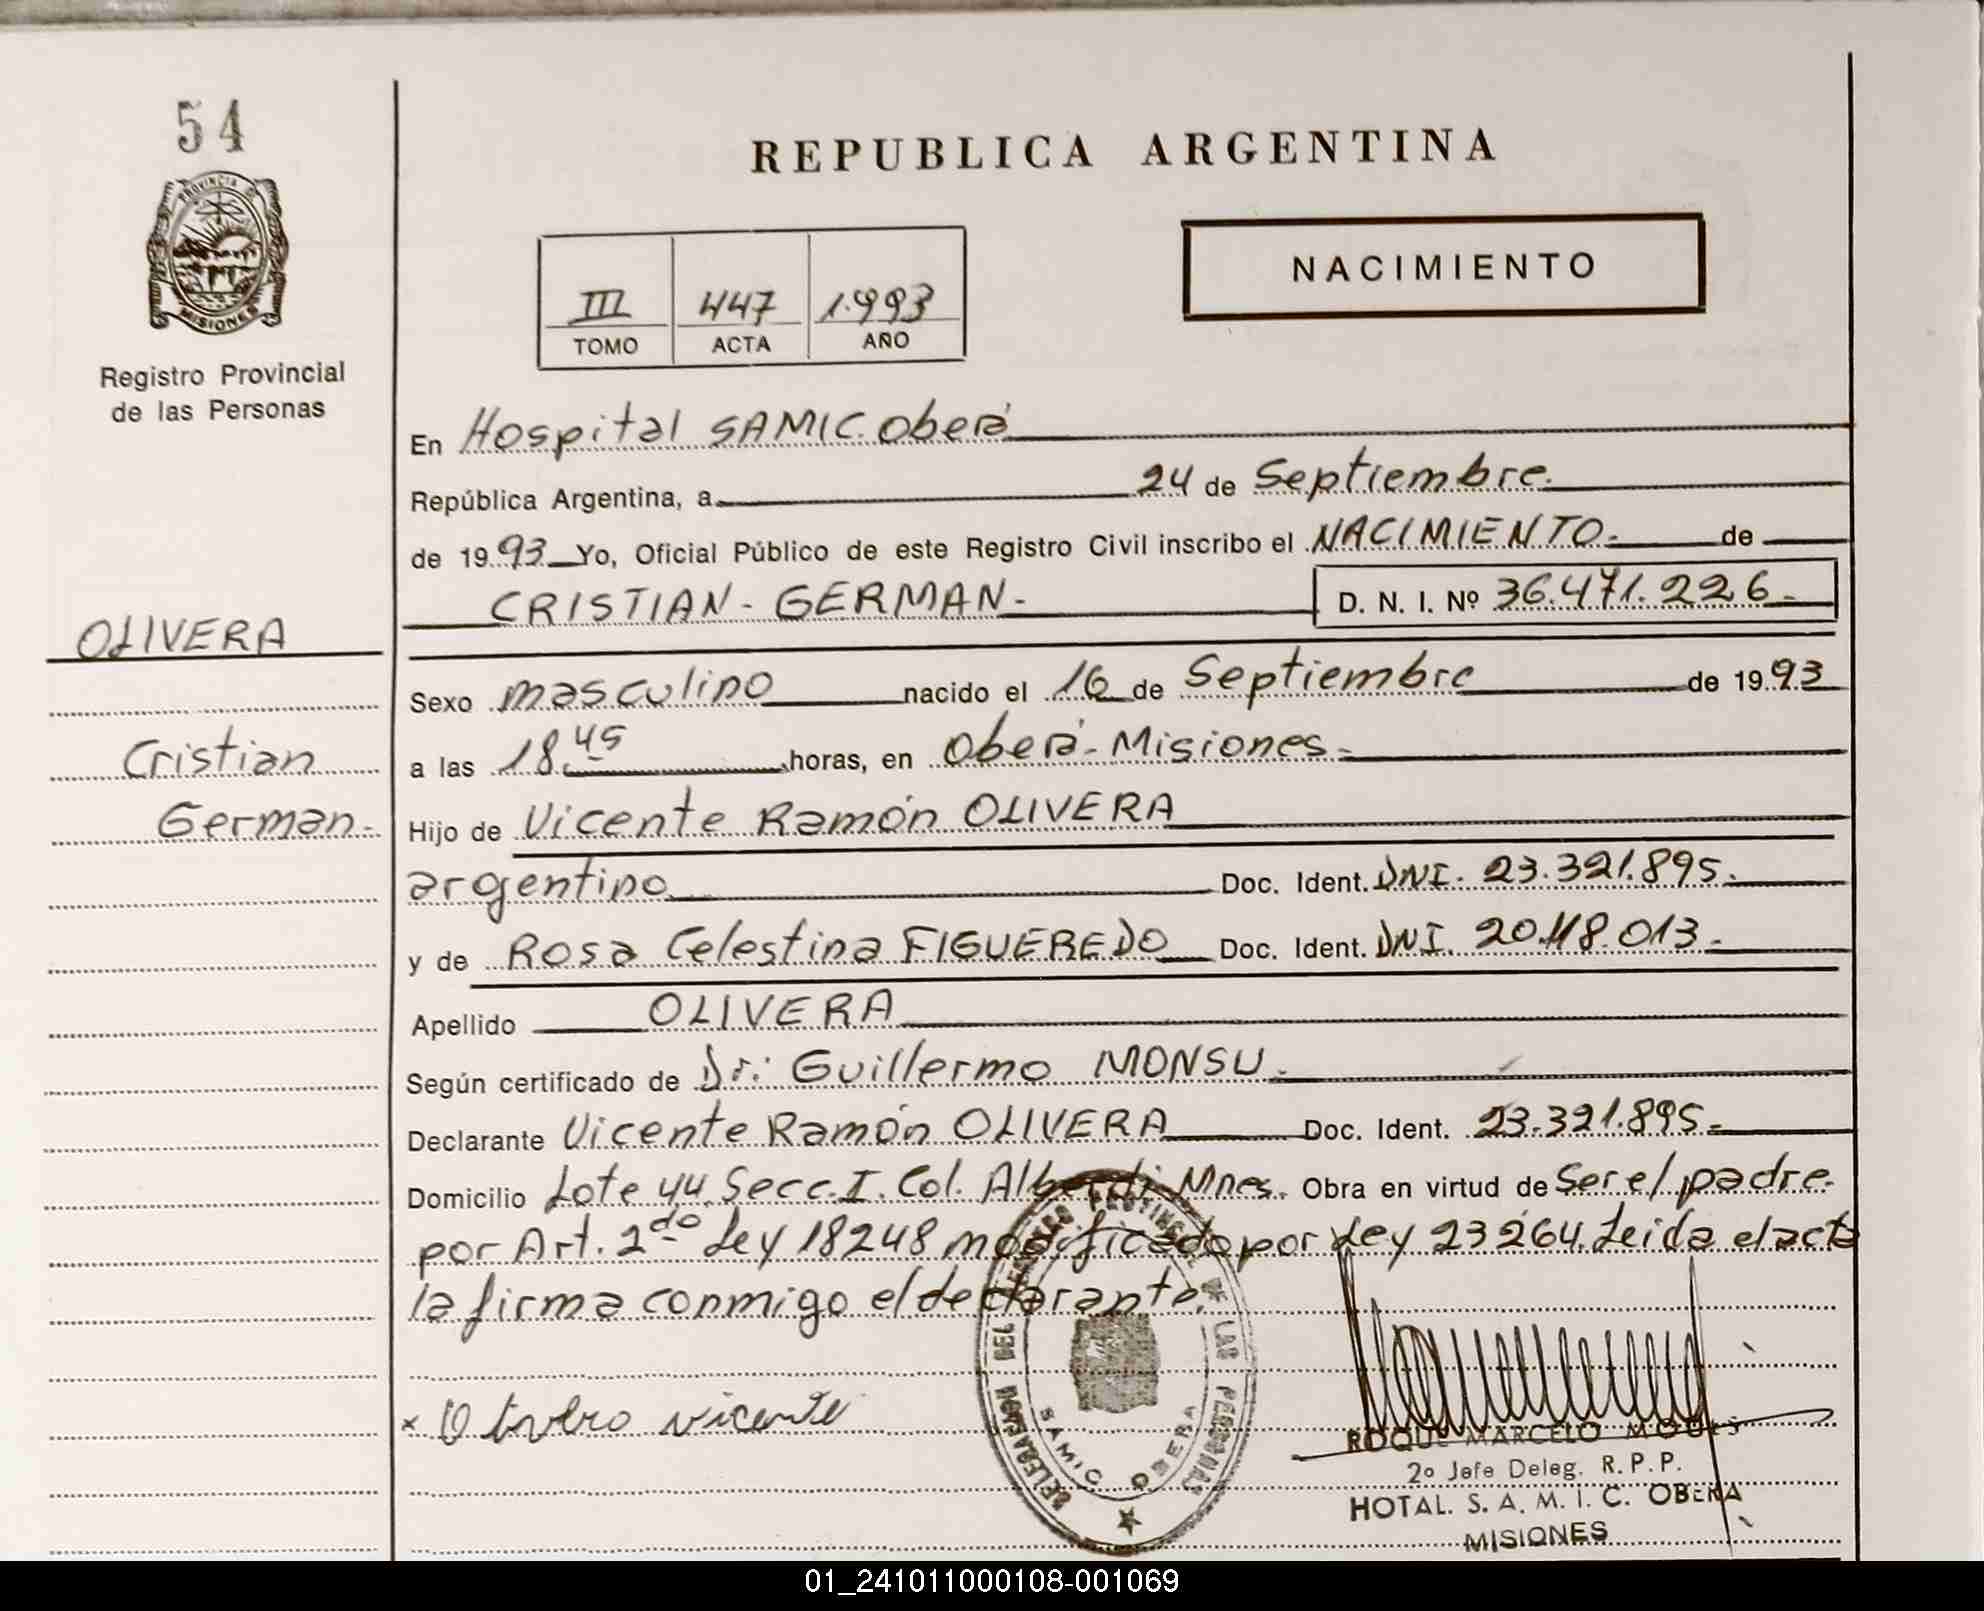 54
REPUBLICA ARGENTINA
PROVINCIA D
MISIONES
NACIMIENTO
III 447 1.993
TOMO ACTA AÑO
Registro Provincial
de las Personas
En Hospital SAMIC. Oberá
República Argentina, a 24 de Septiembre.
de 19 93 Yo, Oficial Público de este Registro Civil inscribo el NACIMIENTO.- de
CRISTIAN - GERMAN.- D. N. I. Nº 36.471.226.-
OLIVERA
Sexo masculino nacido el 16 de Septiembre de 19 93
Cristian
a las 18.45 horas, en Oberá - Misiones.-
German.-
Hijo de Vicente Ramón OLIVERA
argentino Doc. Ident. DNI. 23.321.895.-
y de Rosa Celestina FIGUEREDO Doc. Ident. DNI. 20.118.013.-
Apellido OLIVERA
Según certificado de Dr: Guillermo MONSU.-
Declarante Vicente Ramón OLIVERA Doc. Ident. 23.321.895.-
Domicilio Lote 44. Secc. I. Col. Alberdi Mnes. Obra en virtud de ser el padre.
por Art. 2do Ley 18248 modificado por Ley 23264. Leida el acta
la firma conmigo el declarante.
x vicente
DELEGACION DEL REGISTRO PROVINCIAL DE LAS PERSONAS
SAMIC OBERA
ROQUE MARCELO
2º Jefe Deleg. R. P. P.
HOTAL. S. A. M. I. C. OBERA
MISIONES
01_241011000108-001069